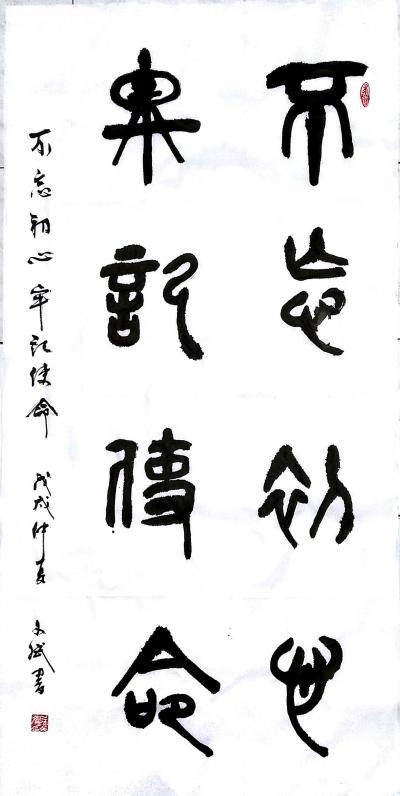 不忘初心
牢記使命
不忘初心 牢记使命 戊戌仲夏 文斌書